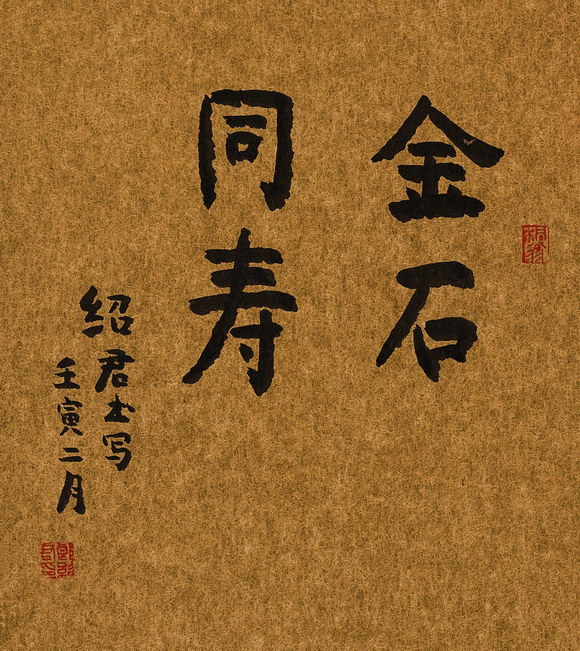 金石
同寿
绍君书写
壬寅二月